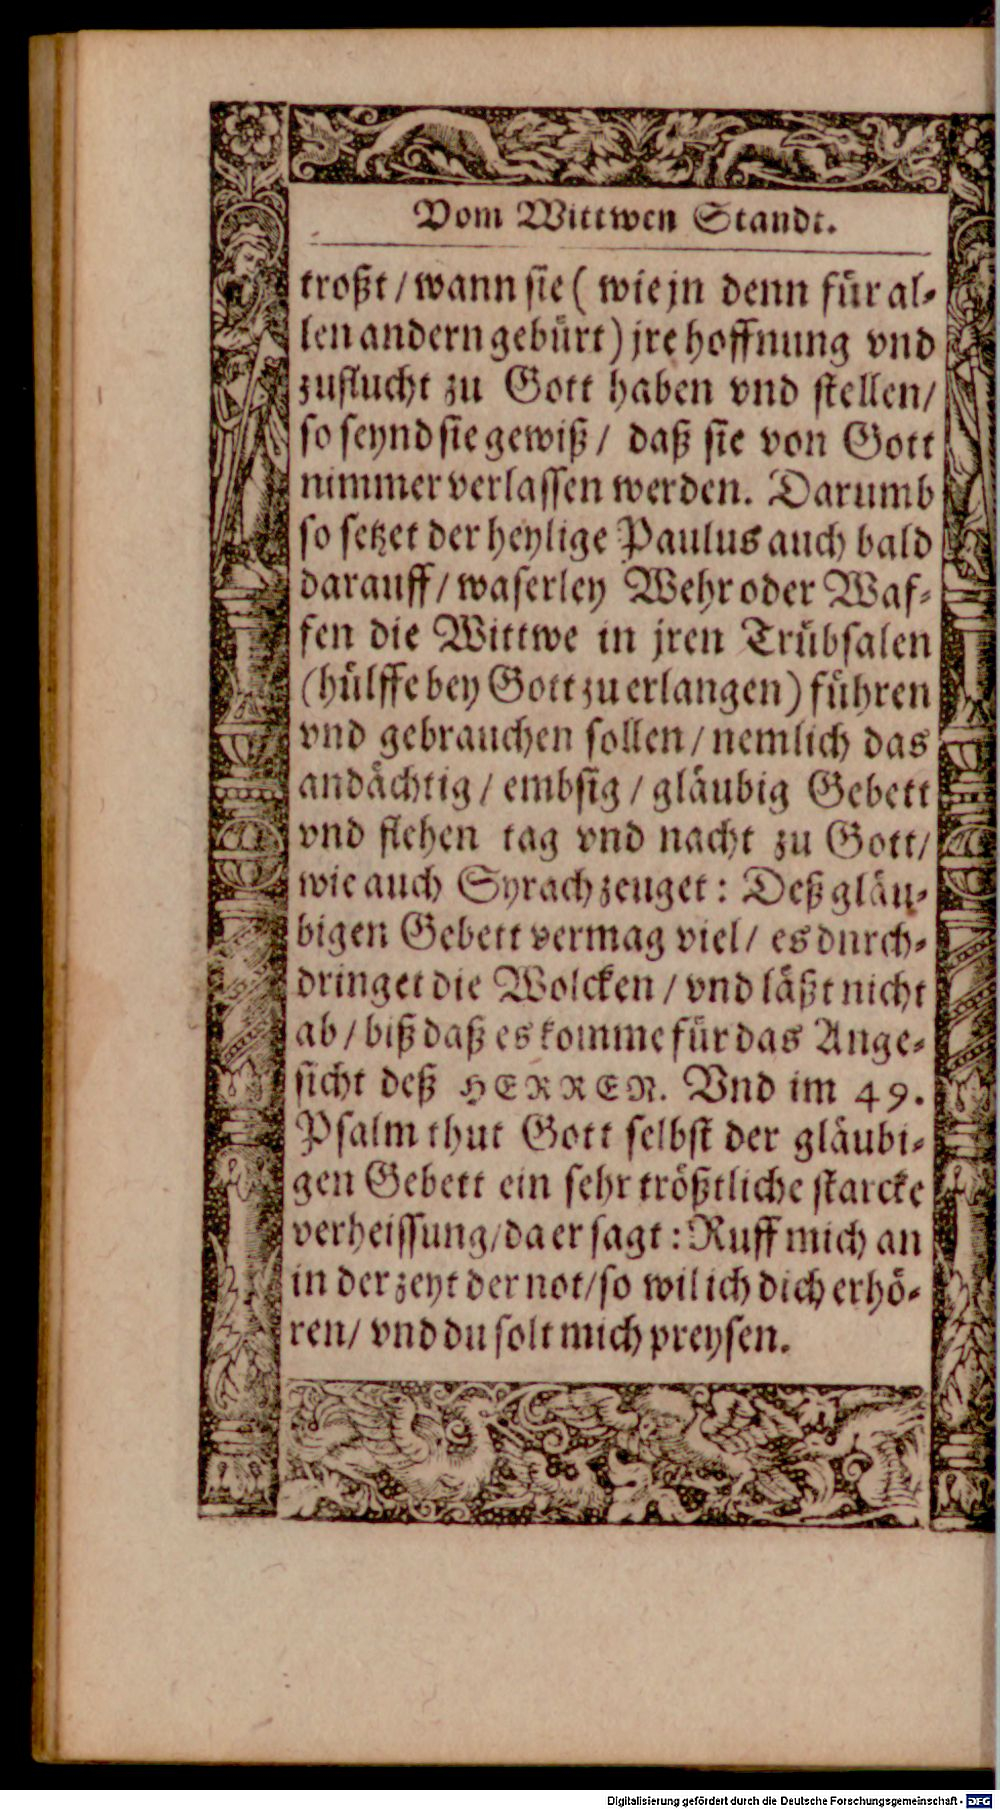 Vom Wittwen Standt.
troßt / wann sie ( wie jn denn für al-
len andern gebürt ) jre hoffnung vnd
zuflucht zu Gott haben vnd stellen /
so seynd sie gewiß / daß sie von Gott
nimmer verlassen werden. Darumb
so setzet der heylige Paulus auch bald
darauff / waserley Wehr oder Waf-
fen die Wittwe in jren Trübsalen
(hülffe bey Gott zu erlangen) führen
vnd gebrauchen sollen / nemlich das
andächtig / embsig / gläubig Gebett
vnd flehen tag vnd nacht zu Gott /
wie auch Syrach zeuget : Deß gläu-
bigen Gebett vermag viel / es dnrch-
dringet die Wolcken / vnd läßt nicht
ab / biß daß es komme für das Ange-
sicht deß HERREN. Vnd im 49.
Psalm thut Gott selbst der gläubi-
gen Gebett ein sehr trößtliche starcke
verheissung / da er sagt : Ruff mich an
in der zeyt der not / so wil ich dich erhö-
ren / vnd du solt mich preysen.
Digitalisierung gefördert durch die Deutsche Forschungsgemeinschaft - DFG